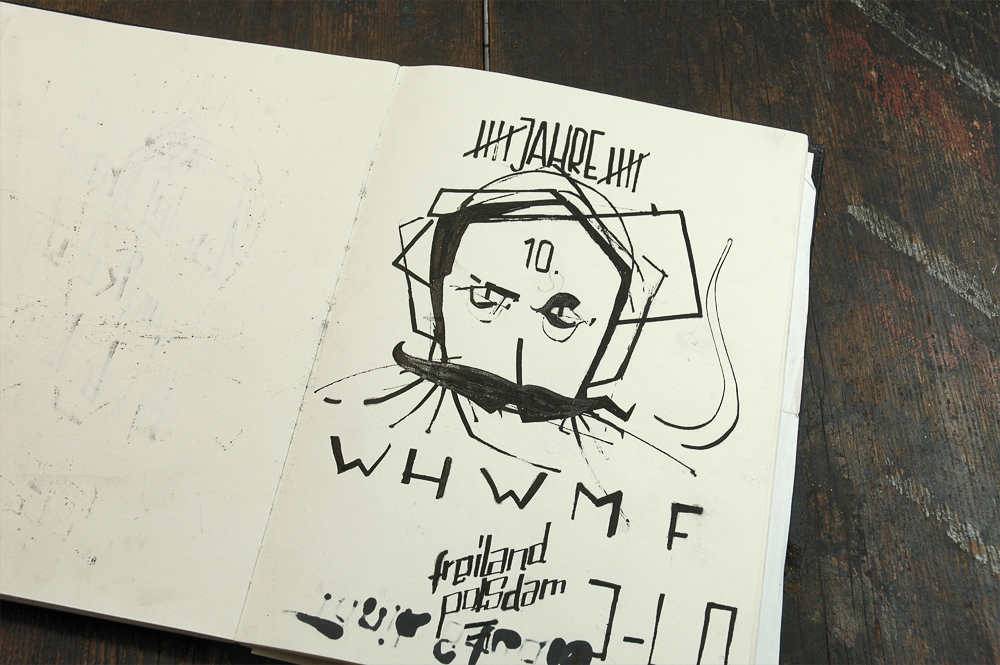 JAHRE
10.
W H W M F
freiland
potsdam